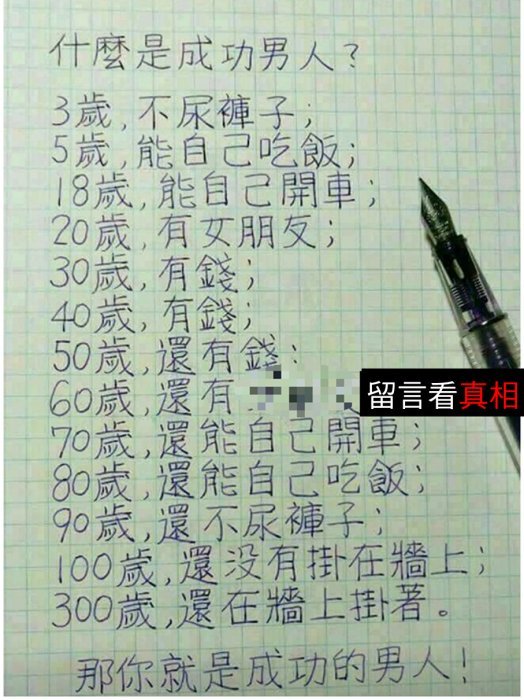 什麼是成功男人?
3歲,不尿褲子;
5歲,能自己吃飯;
18歲,能自己開車;
20歲,有女朋友;
30歲,有錢;
40歲,有錢;
50歲,還有錢;
60歲,還有 留言看真相
70歲,還能自己開車;
80歲,還能自己吃飯;
90歲,還不尿褲子;
100歲,還没有掛在牆上;
300歲,還在牆上掛著。
那你就是成功的男人!